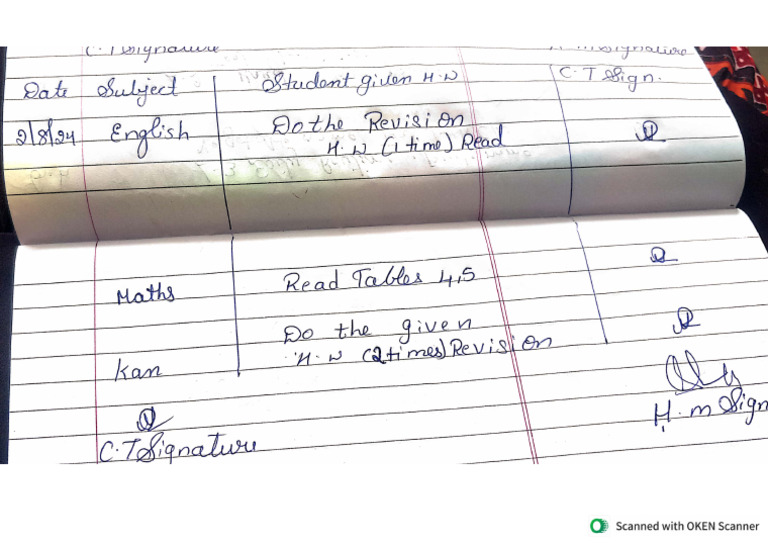 C.T Signature
Date Subject Student given H.W C.T Sign.
2/8/24 English Do the Revision
H.W (1 time) Read
Maths Read Tables 4,5
Do the given
Kan H.W (2 times) Revision
C.T Signature
H.m Sign
Scanned with OKEN Scanner